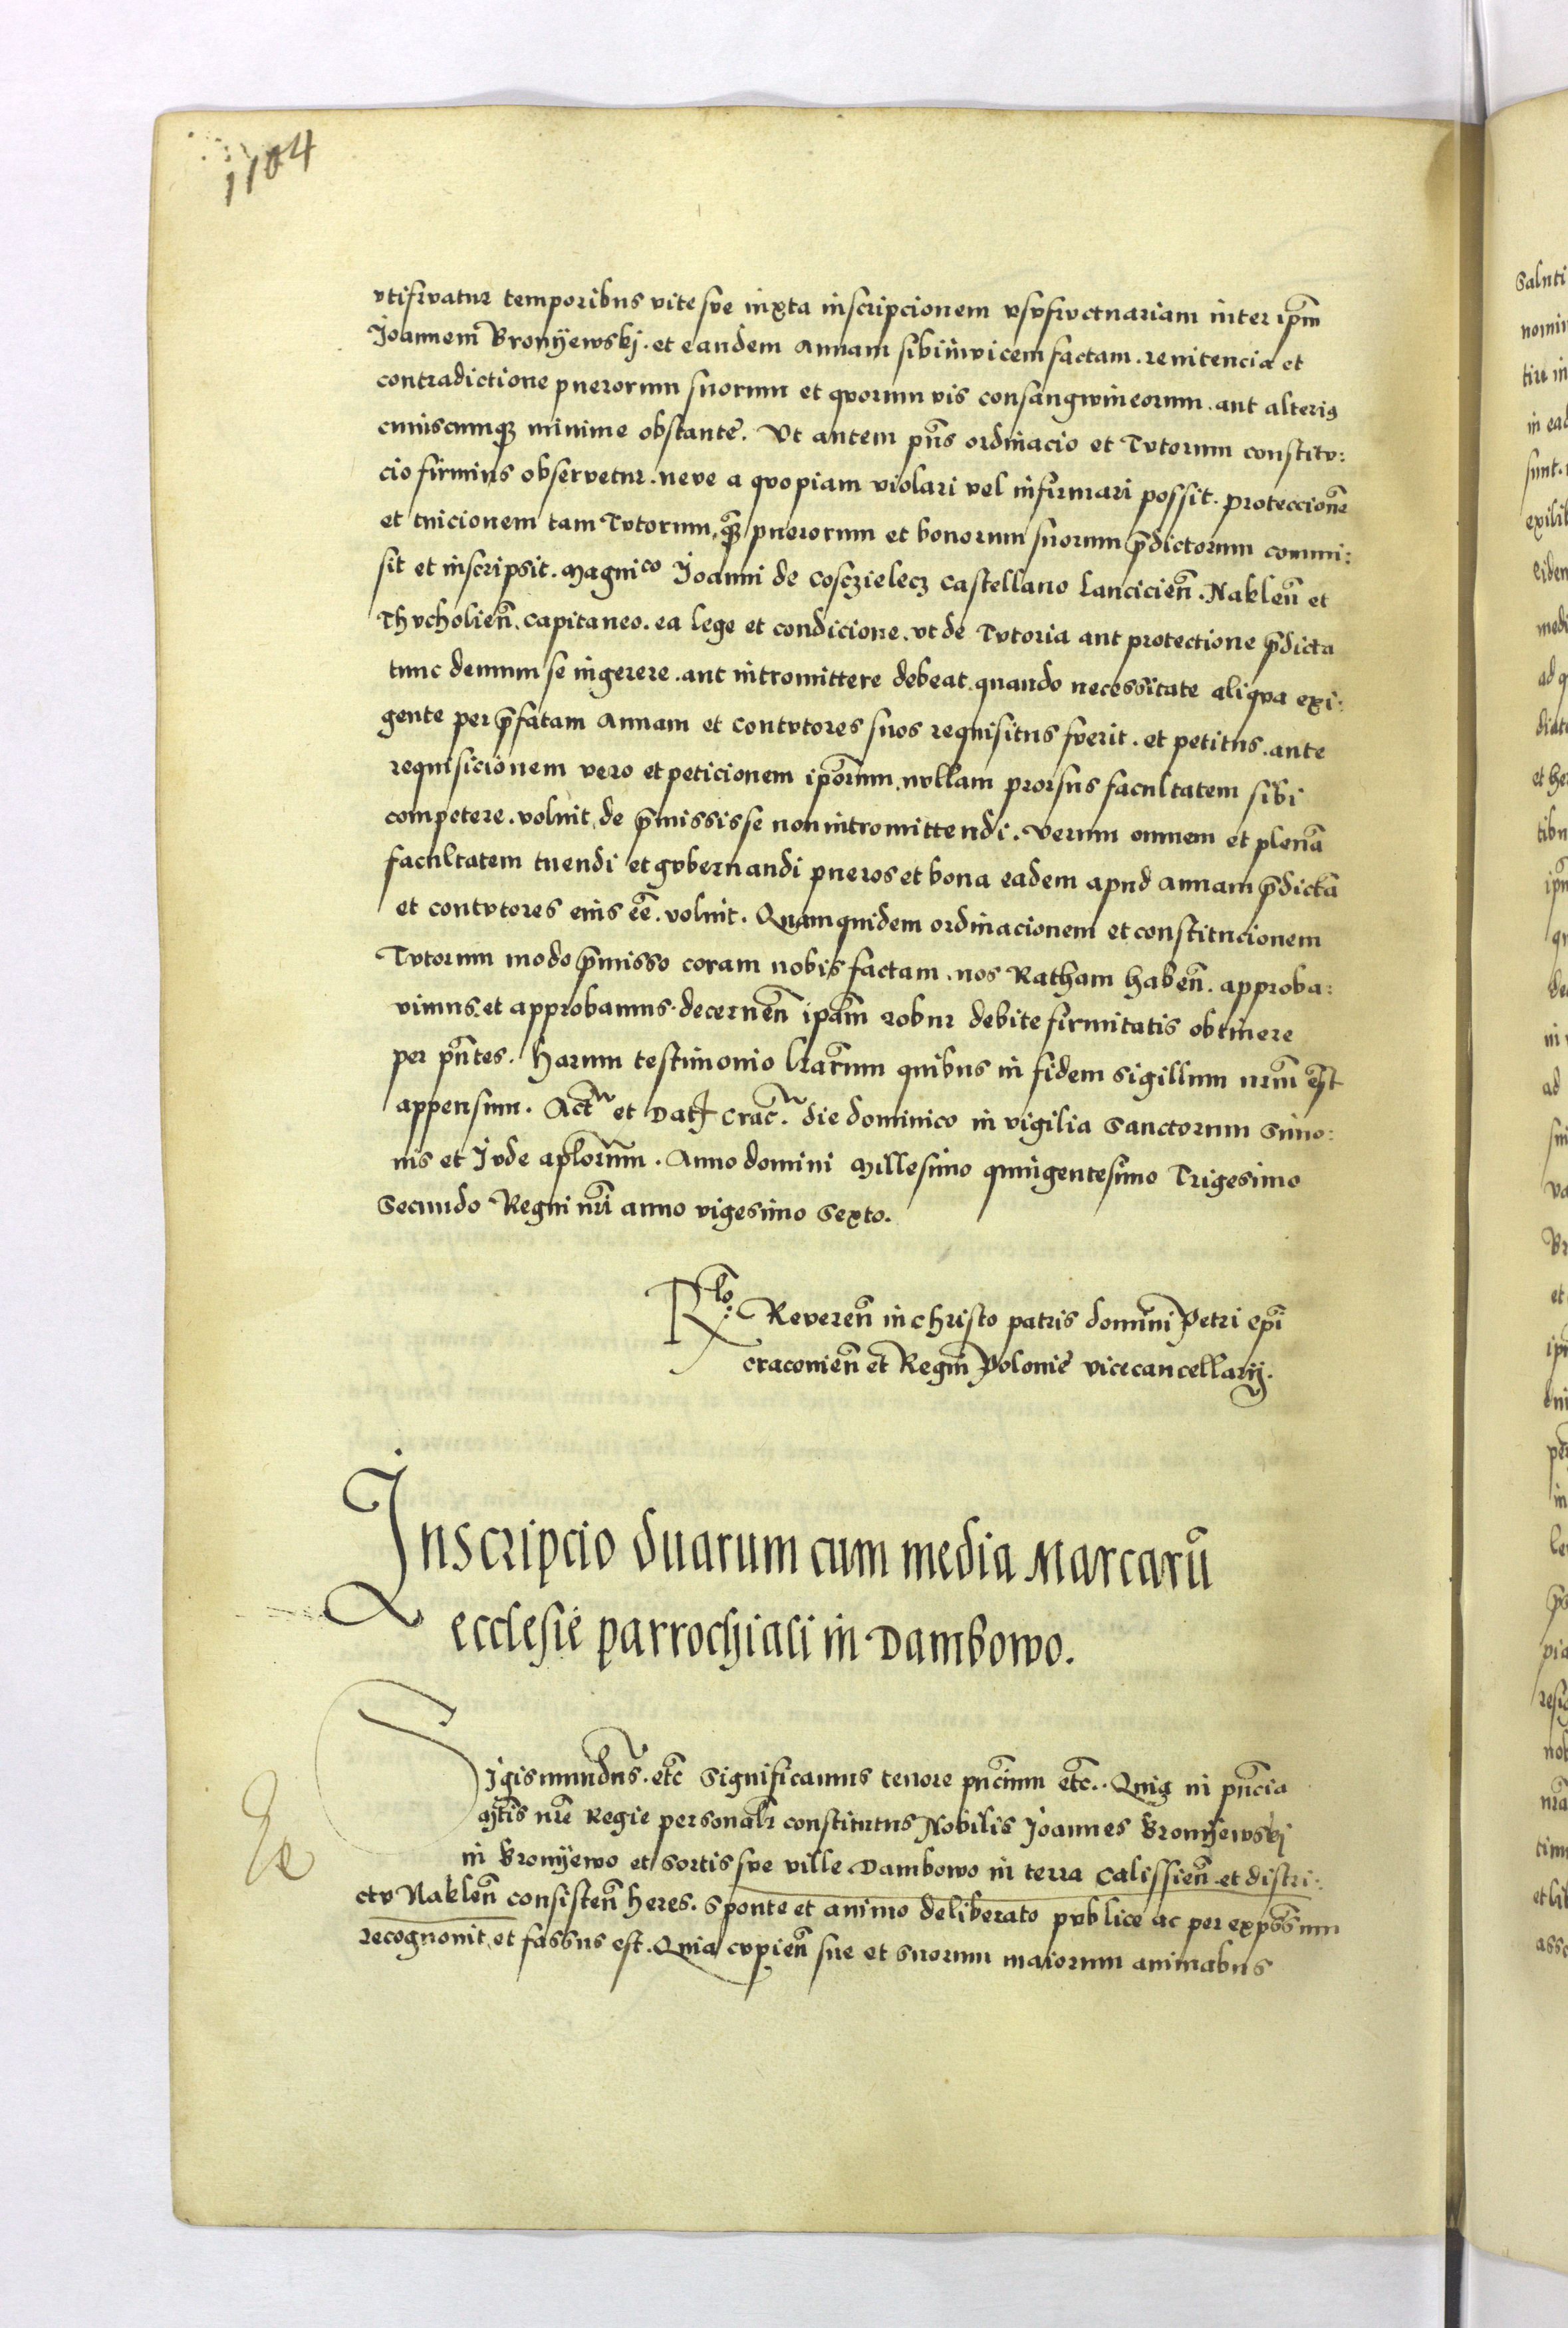 1104
vtifrvatur temporibus vite sve iuxta inscripcionem vsvfrvctuariam inter ip̄m
Joannem Bronÿewskj. et eandem Annam sibiinvicem factam. renitencia et
contradictione puerorum suorum et qvorum vis consangwineorum. aut alteriꝯ
cuiuscumqꝫ minime obstante. Vt autem pn̄s ordinacio et Tvtorum constitv:
cio firmius observetur. neve a qvopiam violari vel infirmari possit. proteccionē
et tuicionem tam Tvtorum, qꝫ̄ puerorum et bonorum suorum p̄dictorum commi:
sit et inscripsit. Magnico Joanni de Cosczielecz Castellano Lancicien̄. Naklen̄ et
Thvcholien̄. Capitaneo. ea lege et condicione. vt de Tvtoria aut protectione p̄dicta
tunc demum se ingerere. aut intromittere debeat. quando necessitate aliqva exi:
gente per p̄fatam Annam et contvtores suos requisitus fverit. et petitus. ante
requisicionem vero et peticionem ip̄orum. nvllam prorsus facultatem sibi
competere. voluit, de p̄missis se non intromittendi. Verum omnem et plenā
facultatem tuendi et gvbernandi pueros et bona eadem apud Annam p̄dictā
et contvtores eius ēē. voluit. Quamquidem ordinacionem et constitucionem
Tvtorum modo p̄misso coram nobis factam. nos Ratham haben̄. approba:
vimus. et approbamus. decernen̄ ip̄am robur debite firmitatis obtinere
per pn̄tes. Harum testimonio lr̄arum quibus in fidem sigillum nr̄m est
appensum. Act̄ et Dat̄ Crac̄. die dominico in vigilia Sanctorum Simo:
nis et Jvde ap̄lorum. Anno domini Millesimo quingentesimo Trigesimo
Secundo Regni nr̄i anno vigesimo Sexto.
Rlo: Reveren̄ in christo patris domini Petri ep̄i
Craconien̄ et Regni Polonie vicecancellarij.
Inscripcio duarum cum media Marcarū
ecclesie parrochiali in Dambowo.
Sigismundus. etc̄ Significamus tenore pn̄cium etc̄. Quia in pn̄cia
Mt̄is nr̄e Regie personalr̄ constitutus Nobilis Joannes Bronÿewskj
in Bronÿewo et Sortis sve ville Dambowo in terra Calissien̄. et distri:
ctv Naklen̄ consisten̄ heres. Sponte et animo deliberato pvblice ac per exp̄ssum
recognovit, et fassus est. Quia cvpien̄ sue et suorum maiorum animabus